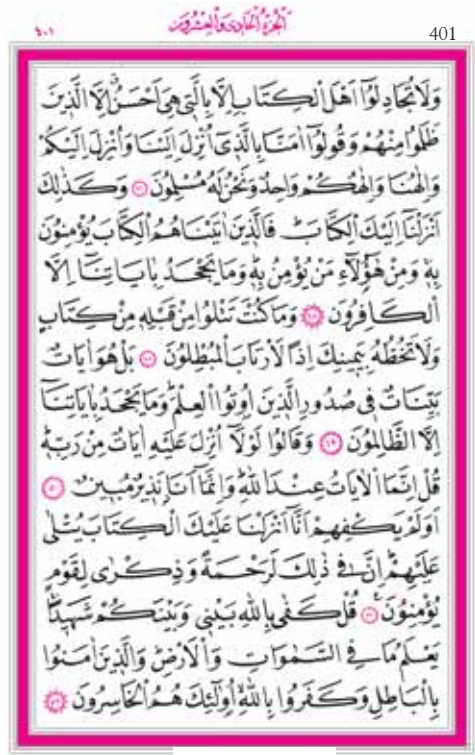 ٤٠١ اَلْجُزْءُ الْحَادِى وَالْعِشْرُونَ 401
وَلَا تُجَادِلُٓوا اَهْلَ الْكِتَابِ اِلَّا بِالَّتٖى هِىَ اَحْسَنُۗ اِلَّا الَّذٖينَ
ظَلَمُوا مِنْهُمْ وَقُولُٓوا اٰمَنَّا بِالَّذٖٓى اُنْزِلَ اِلَيْنَا وَاُنْزِلَ اِلَيْكُمْ
وَاِلٰهُنَا وَاِلٰهُكُمْ وَاحِدٌ وَنَحْنُ لَهُ مُسْلِمُونَ ﴿٤٦﴾ وَكَذٰلِكَ
اَنْزَلْنَٓا اِلَيْكَ الْكِتَابَۜ فَالَّذٖينَ اٰتَيْنَاهُمُ الْكِتَابَ يُؤْمِنُونَ
بِهٖۚ وَمِنْ هٰٓؤُ۬لَٓاءِ مَنْ يُؤْمِنُ بِهٖۜ وَمَا يَجْحَدُ بِاٰيَاتِنَٓا اِلَّا
الْكَافِرُونَ ﴿٤٧﴾ وَمَا كُنْتَ تَتْلُوا مِنْ قَبْلِهٖ مِنْ كِتَابٍ
وَلَا تَخُطُّهُ بِيَمٖينِكَ اِذًا لَارْتَابَ الْمُبْطِلُونَ ﴿٤٨﴾ بَلْ هُوَ اٰيَاتٌ
بَيِّنَاتٌ فٖى صُدُورِ الَّذٖينَ اُو۫تُوا الْعِلْمَۜ وَمَا يَجْحَدُ بِاٰيَاتِنَٓا
اِلَّا الظَّالِمُونَ ﴿٤٩﴾ وَقَالُوا لَوْلَٓا اُنْزِلَ عَلَيْهِ اٰيَاتٌ مِنْ رَبِّهٖۜ
قُلْ اِنَّمَا الْاٰيَاتُ عِنْدَ اللّٰهِۜ وَاِنَّمَٓا اَنَا۬ نَذٖيرٌ مُبٖينٌ ﴿٥٠﴾
اَوَلَمْ يَكْفِهِمْ اَنَّٓا اَنْزَلْنَا عَلَيْكَ الْكِتَابَ يُتْلٰى
عَلَيْهِمْۜ اِنَّ فٖى ذٰلِكَ لَرَحْمَةً وَذِكْرٰى لِقَوْمٍ
يُؤْمِنُونَ ﴿٥١﴾ قُلْ كَفٰى بِاللّٰهِ بَيْنٖى وَبَيْنَكُمْ شَهٖيدًاۚ
يَعْلَمُ مَا فِى السَّمٰوَاتِ وَالْاَرْضِۜ وَالَّذٖينَ اٰمَنُوا
بِالْبَاطِلِ وَكَفَرُوا بِاللّٰهِۙ اُو۬لٰٓئِكَ هُمُ الْخَاسِرُونَ ﴿٥٢﴾